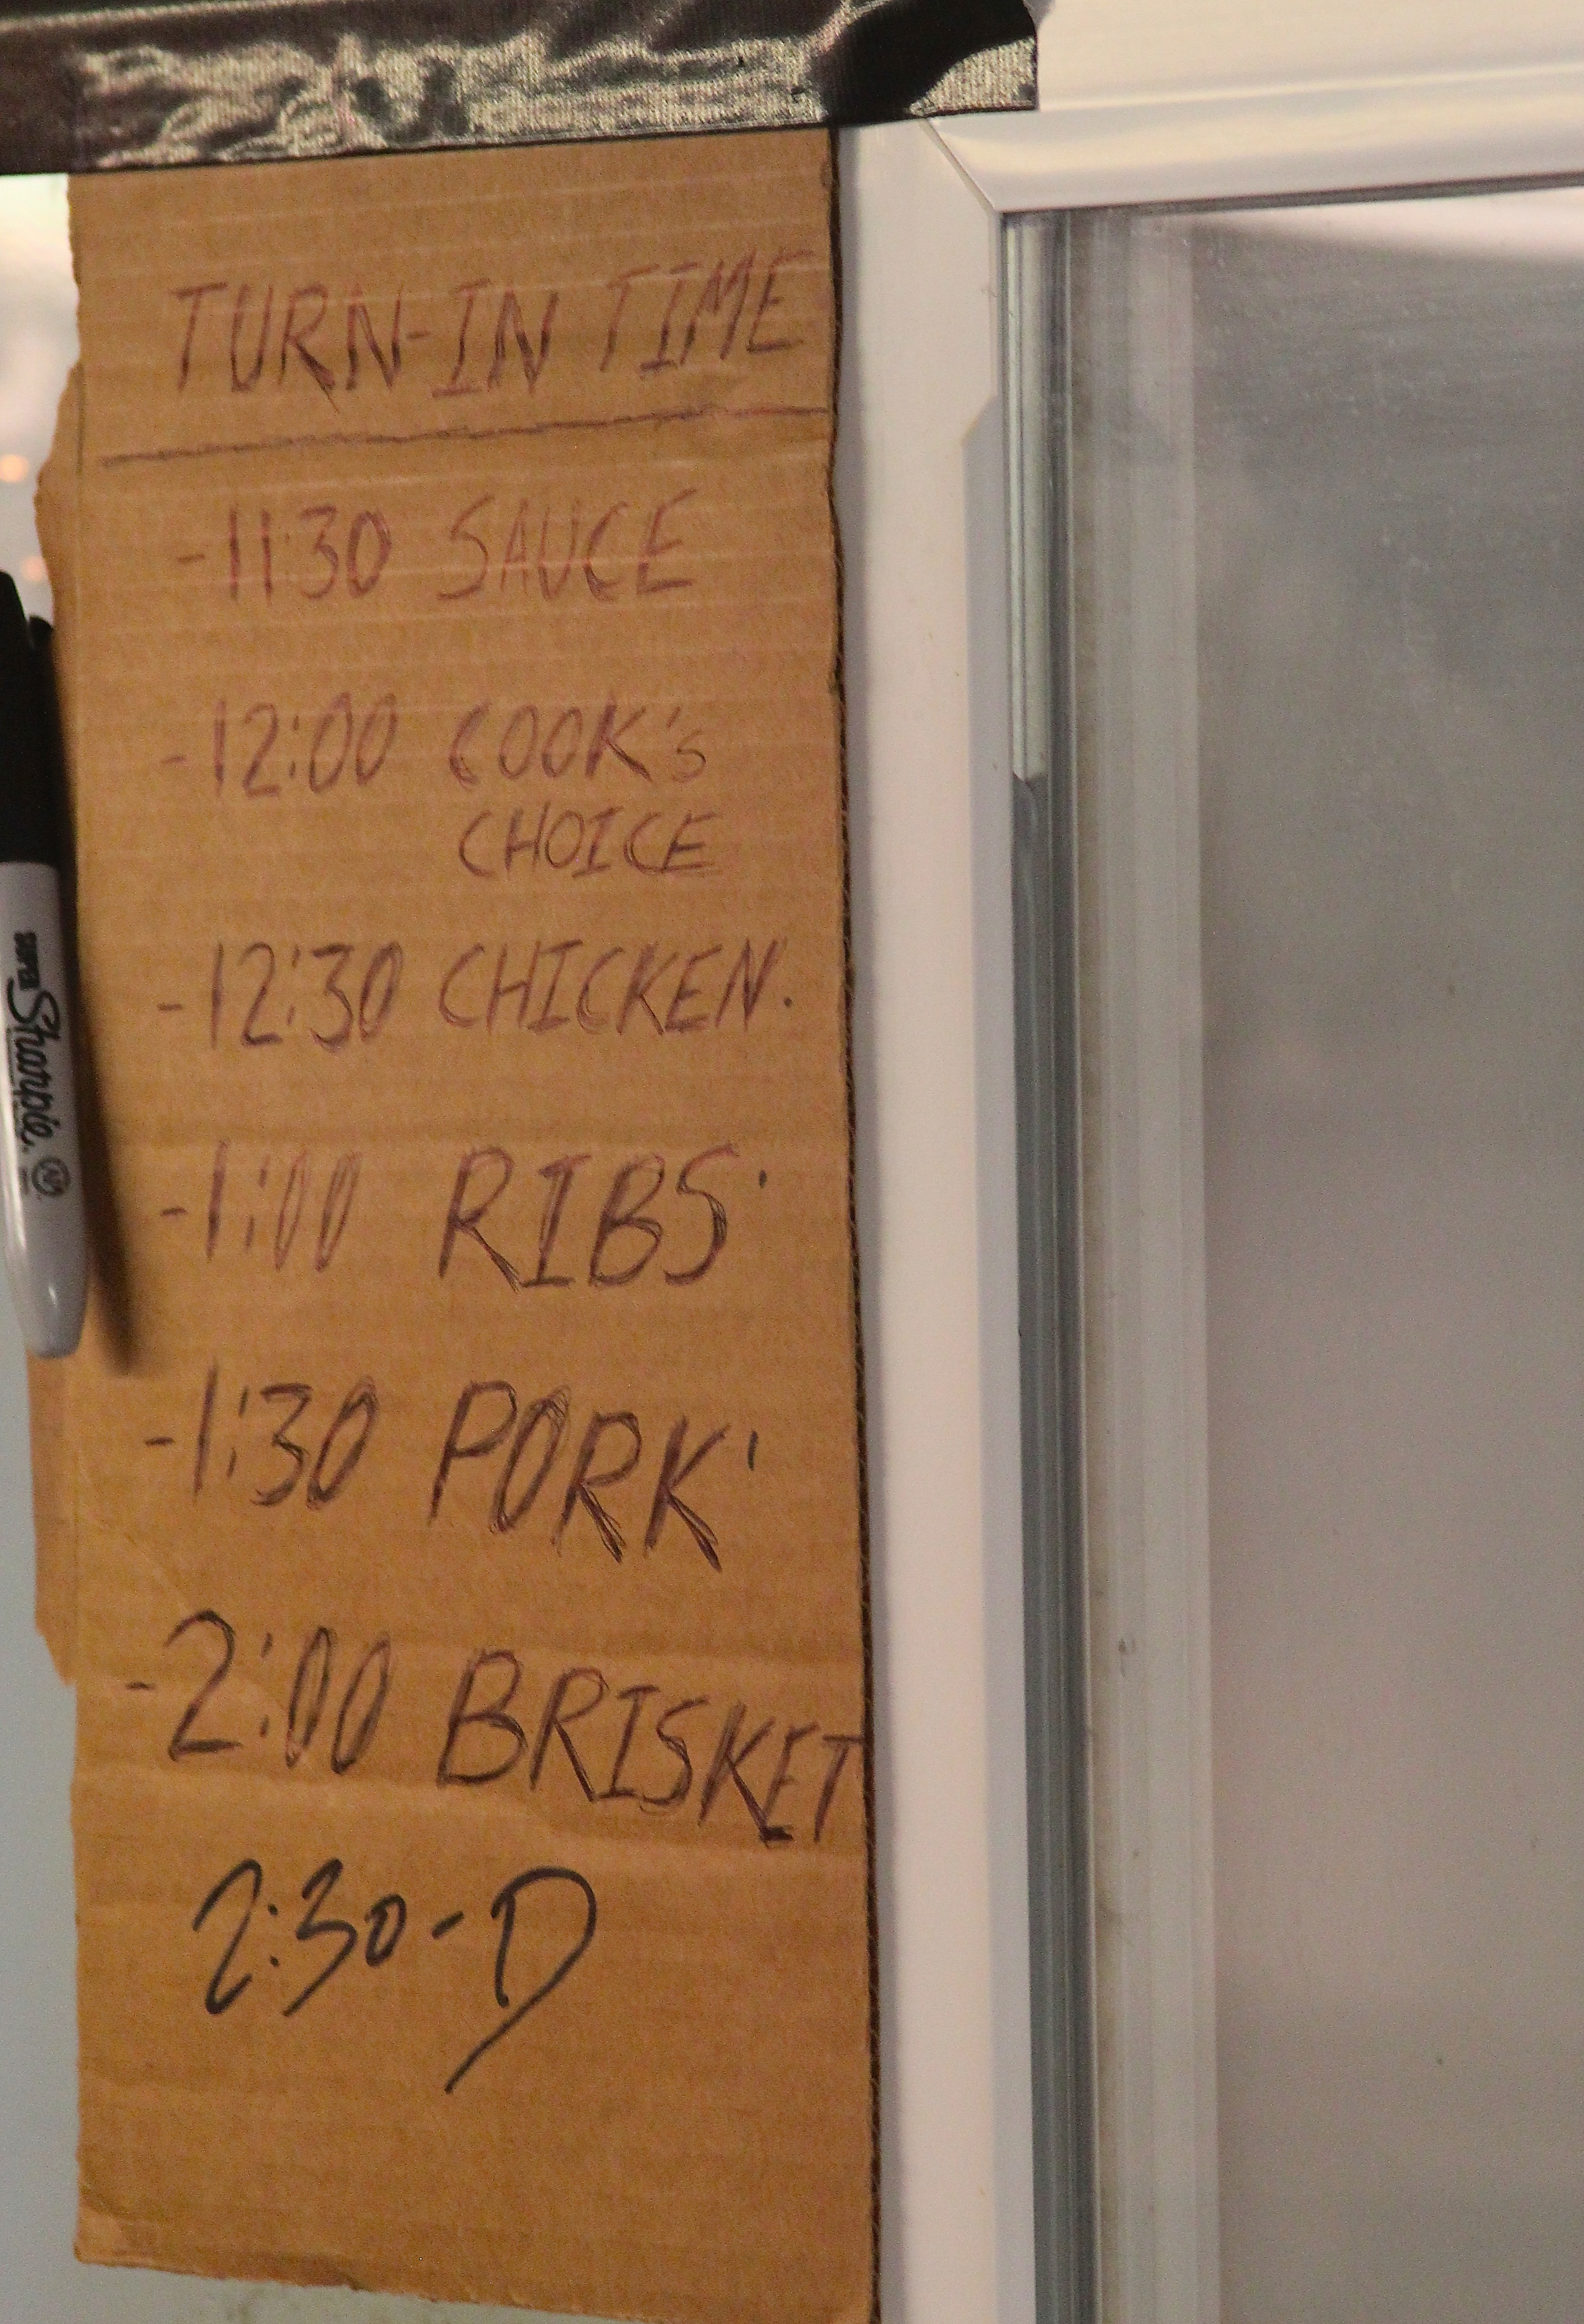 TURN-IN TIME
-11:30 SAUCE
-12:00 COOK's
CHOICE
-12:30 CHICKEN.
-1:00 RIBS
-1:30 PORK
-2:00 BRISKET
2:30-D
SUPER Sharpie.